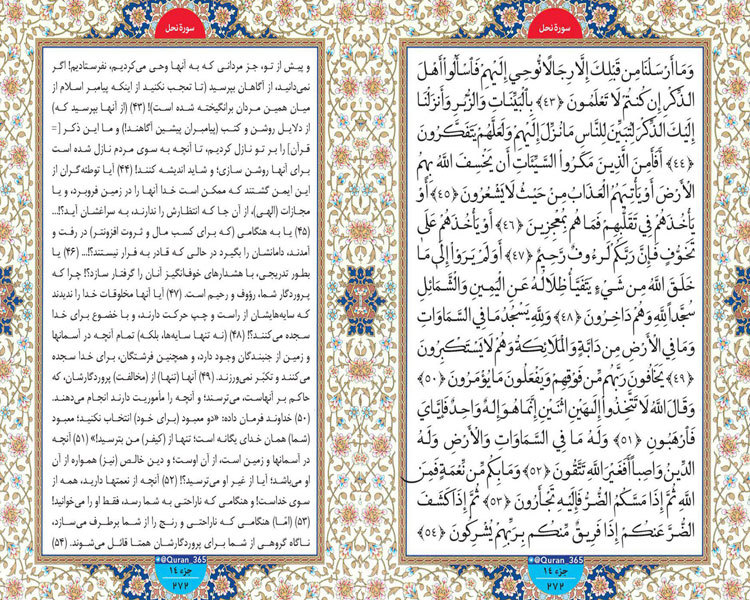 سورهٔ نحل
وَمَا أَرْسَلْنَا مِن قَبْلِكَ إِلَّا رِجَالًا نُّوحِي إِلَيْهِمْ فَاسْأَلُوا أَهْلَ
الذِّكْرِ إِن كُنتُمْ لَا تَعْلَمُونَ ﴿٤٣﴾ بِالْبَيِّنَاتِ وَالزُّبُرِ وَأَنزَلْنَا
إِلَيْكَ الذِّكْرَ لِتُبَيِّنَ لِلنَّاسِ مَا نُزِّلَ إِلَيْهِمْ وَلَعَلَّهُمْ يَتَفَكَّرُونَ
﴿٤٤﴾ أَفَأَمِنَ الَّذِينَ مَكَرُوا السَّيِّئَاتِ أَن يَخْسِفَ اللَّهُ بِهِمُ
الْأَرْضَ أَوْ يَأْتِيَهُمُ الْعَذَابُ مِنْ حَيْثُ لَا يَشْعُرُونَ ﴿٤٥﴾ أَوْ
يَأْخُذَهُمْ فِي تَقَلُّبِهِمْ فَمَا هُم بِمُعْجِزِينَ ﴿٤٦﴾ أَوْ يَأْخُذَهُمْ عَلَىٰ
تَخَوُّفٍ فَإِنَّ رَبَّكُمْ لَرَءُوفٌ رَّحِيمٌ ﴿٤٧﴾ أَوَلَمْ يَرَوْا إِلَىٰ مَا
خَلَقَ اللَّهُ مِن شَيْءٍ يَتَفَيَّأُ ظِلَالُهُ عَنِ الْيَمِينِ وَالشَّمَائِلِ
سُجَّدًا لِّلَّهِ وَهُمْ دَاخِرُونَ ﴿٤٨﴾ وَلِلَّهِ يَسْجُدُ مَا فِي السَّمَاوَاتِ
وَمَا فِي الْأَرْضِ مِن دَابَّةٍ وَالْمَلَائِكَةُ وَهُمْ لَا يَسْتَكْبِرُونَ
﴿٤٩﴾ يَخَافُونَ رَبَّهُم مِّن فَوْقِهِمْ وَيَفْعَلُونَ مَا يُؤْمَرُونَ ﴿٥٠﴾
وَقَالَ اللَّهُ لَا تَتَّخِذُوا إِلَٰهَيْنِ اثْنَيْنِ إِنَّمَا هُوَ إِلَٰهٌ وَاحِدٌ فَإِيَّايَ
فَارْهَبُونِ ﴿٥١﴾ وَلَهُ مَا فِي السَّمَاوَاتِ وَالْأَرْضِ وَلَهُ
الدِّينُ وَاصِبًا أَفَغَيْرَ اللَّهِ تَتَّقُونَ ﴿٥٢﴾ وَمَا بِكُم مِّن نِّعْمَةٍ فَمِنَ
اللَّهِ ثُمَّ إِذَا مَسَّكُمُ الضُّرُّ فَإِلَيْهِ تَجْأَرُونَ ﴿٥٣﴾ ثُمَّ إِذَا كَشَفَ
الضُّرَّ عَنكُمْ إِذَا فَرِيقٌ مِّنكُم بِرَبِّهِمْ يُشْرِكُونَ ﴿٥٤﴾
@Quran_365
جزء ١٤
٢٧٢
سورهٔ نحل
و پیش از تو، جز مردانی که به آنها وحی می‌کردیم، نفرستادیم! اگر
نمی‌دانید، از آگاهان بپرسید (تا تعجب نکنید از اینکه پیامبر اسلام از
میان همین مردان برانگیخته شده است)! (۴۳) (از آنها بپرسید که)
از دلایل روشن و کتب (پیامبران پیشین آگاهند!) و ما این ذکر [=
قرآن] را بر تو نازل کردیم، تا آنچه به سوی مردم نازل شده است
برای آنها روشن سازی؛ و شاید اندیشه کنند! (۴۴) آیا توطئه‌گران از
این ایمن گشتند که ممکن است خدا آنها را در زمین فروبرد، و یا
مجازات (الهی)، از آن جا که انتظارش را ندارند، به سراغشان آید؟!..
(۴۵) یا به هنگامی (که برای کسب مال و ثروت افزونتر) در رفت و
آمدند، دامانشان را بگیرد در حالی که قادر به فرار نیستند؟!.. (۴۶) یا
بطور تدریجی، با هشدارهای خوف‌انگیز آنان را گرفتار سازد؟! چرا که
پروردگار شما، رؤوف و رحیم است. (۴۷) آیا آنها مخلوقات خدا را ندیدند
که سایه‌هایشان از راست و چپ حرکت دارند، و با خضوع برای خدا
سجده می‌کنند؟! (۴۸) (نه تنها سایه‌ها، بلکه) تمام آنچه در آسمانها
و زمین از جنبندگان وجود دارد، و همچنین فرشتگان، برای خدا سجده
می‌کنند و تکبّر نمی‌ورزند. (۴۹) آنها (تنها) از (مخالفت) پروردگارشان، که
حاکم بر آنهاست، می‌ترسند؛ و آنچه را مأموریت دارند انجام می‌دهند.
(۵۰) خداوند فرمان داده: «دو معبود (برای خود) انتخاب نکنید؛ معبود
(شما) همان خدای یگانه است؛ تنها از (کیفر) من بترسید!» (۵۱) آنچه
در آسمانها و زمین است، از آن اوست؛ و دین خالص (نیز) همواره از آن
او می‌باشد؛ آیا از غیر او می‌ترسید؟! (۵۲) آنچه از نعمتها دارید، همه از
سوی خداست! و هنگامی که ناراحتی به شما رسد، فقط او را می‌خوانید!
(۵۳) (امّا) هنگامی که ناراحتی و رنج را از شما برطرف می‌سازد،
ناگاه گروهی از شما برای پروردگارشان همتا قائل می‌شوند. (۵۴)
@Quran_365
جزء ١٤
٢٧٢